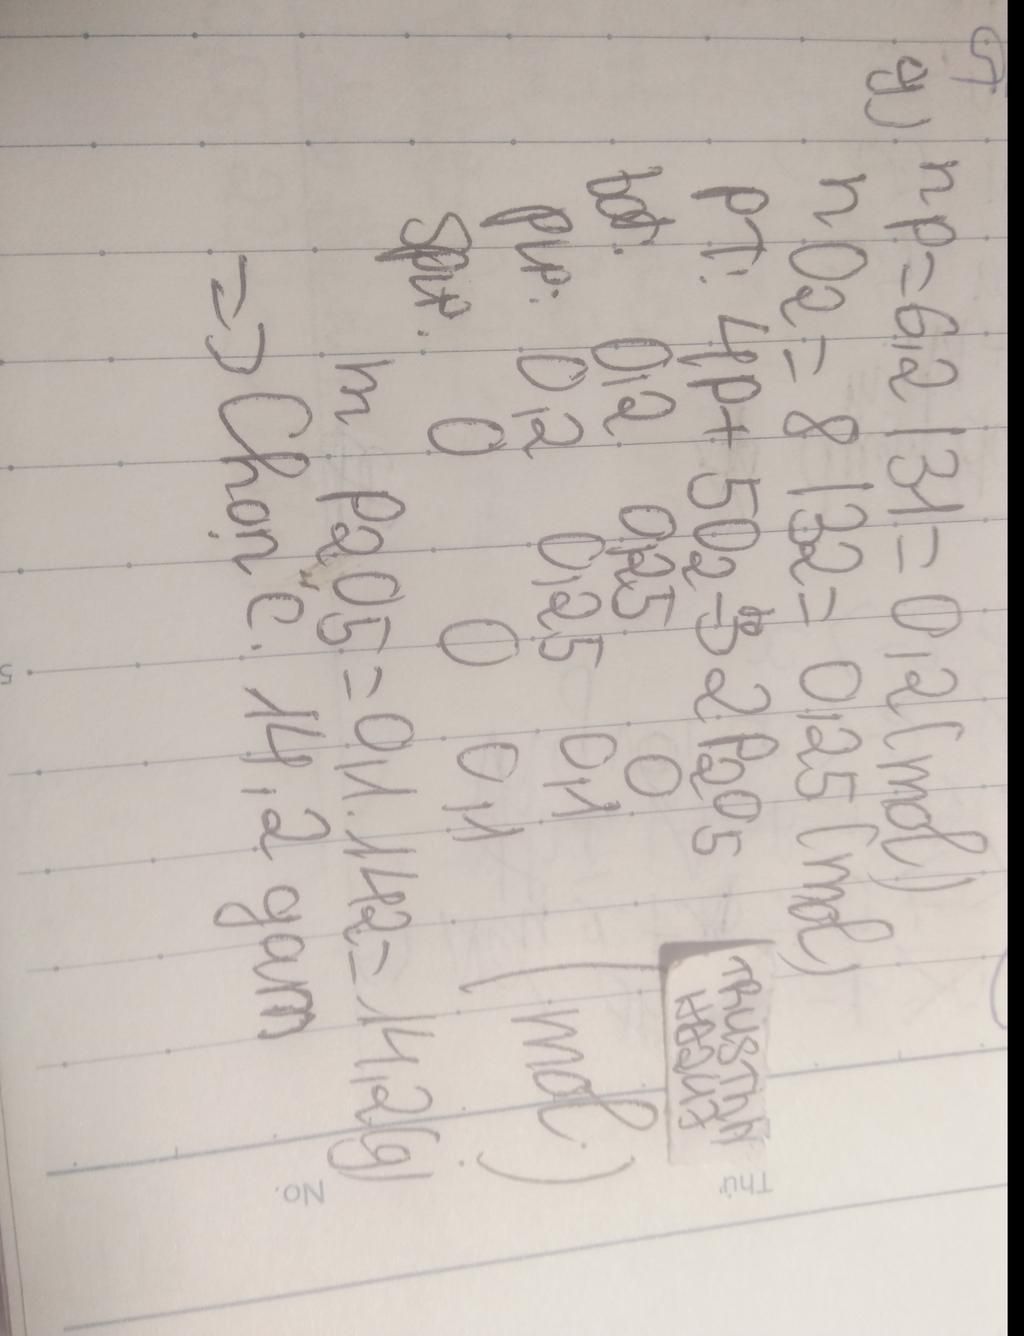 5
g) np=6,2/31=0,2(mol)
nO2=8/32=0,25(mol)
PT: 4P+5O2-to>2P2O5
bđ: 0,2 0,25 0
pư: 0,2 0,25 0,1
Spư: 0 0 0,1
(mol)
m P2O5=0,1.142=14,2(g)
=> Chọn "c. 14,2 gam
Thứ
No.
5